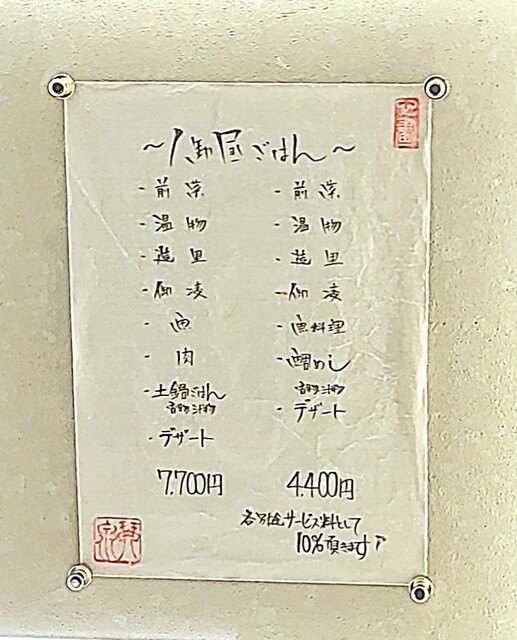 ～人御昼ごはん～
・前菜
・温物
・造里
・御凌
・魚
・肉
・土鍋ごはん
香物 汁物
・デザート
7.700円
・前菜
・温物
・造里
・御凌
・魚料理
・鯛めし
香物 汁物
・デザート
4.400円
各別途サービス料として
10%頂きます